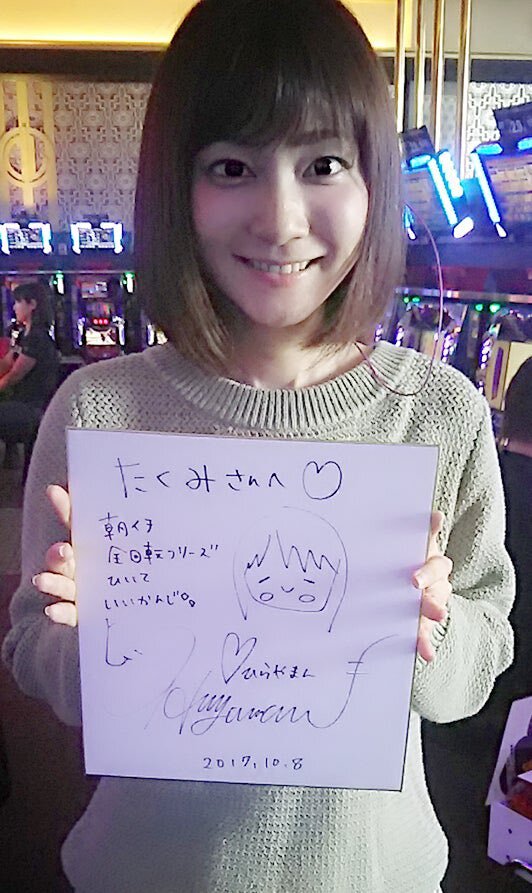 たくみさんへ♡
朝イチ
全回転フリーズ
ひいて
いいかんじ。
♡ひらやまん
2017.10.8